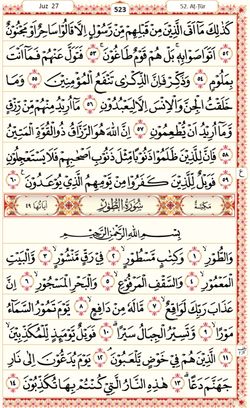 Juz 27 523 52. At-Tür
كَذَٰلِكَ مَآ أَتَى ٱلَّذِينَ مِن قَبْلِهِم مِّن رَّسُولٍ إِلَّا قَالُوا۟ سَاحِرٌ أَوْ مَجْنُونٌ
٥٢ أَتَوَاصَوْا۟ بِهِۦ ۚ بَلْ هُمْ قَوْمٌ طَاغُونَ ٥٣ فَتَوَلَّ عَنْهُمْ فَمَآ أَنتَ
بِمَلُومٍ ٥٤ وَذَكِّرْ فَإِنَّ ٱلذِّكْرَىٰ تَنفَعُ ٱلْمُؤْمِنِينَ ٥٥ وَمَا
خَلَقْتُ ٱلْجِنَّ وَٱلْإِنسَ إِلَّا لِيَعْبُدُونِ ٥٦ مَآ أُرِيدُ مِنْهُم مِّن رِّزْقٍ
وَمَآ أُرِيدُ أَن يُطْعِمُونِ ٥٧ إِنَّ ٱللَّهَ هُوَ ٱلرَّزَّاقُ ذُو ٱلْقُوَّةِ ٱلْمَتِينُ
٥٨ فَإِنَّ لِلَّذِينَ ظَلَمُوا۟ ذَنُوبًا مِّثْلَ ذَنُوبِ أَصْحَٰبِهِمْ فَلَا يَسْتَعْجِلُونِ
٥٩ فَوَيْلٌ لِّلَّذِينَ كَفَرُوا۟ مِن يَوْمِهِمُ ٱلَّذِى يُوعَدُونَ ٦٠
مَكِّيَّة سُورَةُ ٱلطُّورِ آيَاتُهَا ٤٩
بِسْمِ ٱللَّهِ ٱلرَّحْمَٰنِ ٱلرَّحِيمِ
وَٱلطُّورِ ١ وَكِتَٰبٍ مَّسْطُورٍ ٢ فِى رَقٍّ مَّنشُورٍ ٣ وَٱلْبَيْتِ
ٱلْمَعْمُورِ ٤ وَٱلسَّقْفِ ٱلْمَرْفُوعِ ٥ وَٱلْبَحْرِ ٱلْمَسْجُورِ ٦ إِنَّ
عَذَابَ رَبِّكَ لَوَٰقِعٌ ٧ مَّا لَهُۥ مِن دَافِعٍ ٨ يَوْمَ تَمُورُ ٱلسَّمَآءُ
مَوْرًا ٩ وَتَسِيرُ ٱلْجِبَالُ سَيْرًا ١٠ فَوَيْلٌ يَوْمَئِذٍ لِّلْمُكَذِّبِينَ
١١ ٱلَّذِينَ هُمْ فِى خَوْضٍ يَلْعَبُونَ ١٢ يَوْمَ يُدَعُّونَ إِلَىٰ نَارِ
جَهَنَّمَ دَعًّا ١٣ هَٰذِهِ ٱلنَّارُ ٱلَّتِى كُنتُم بِهَا تُكَذِّبُونَ ١٤